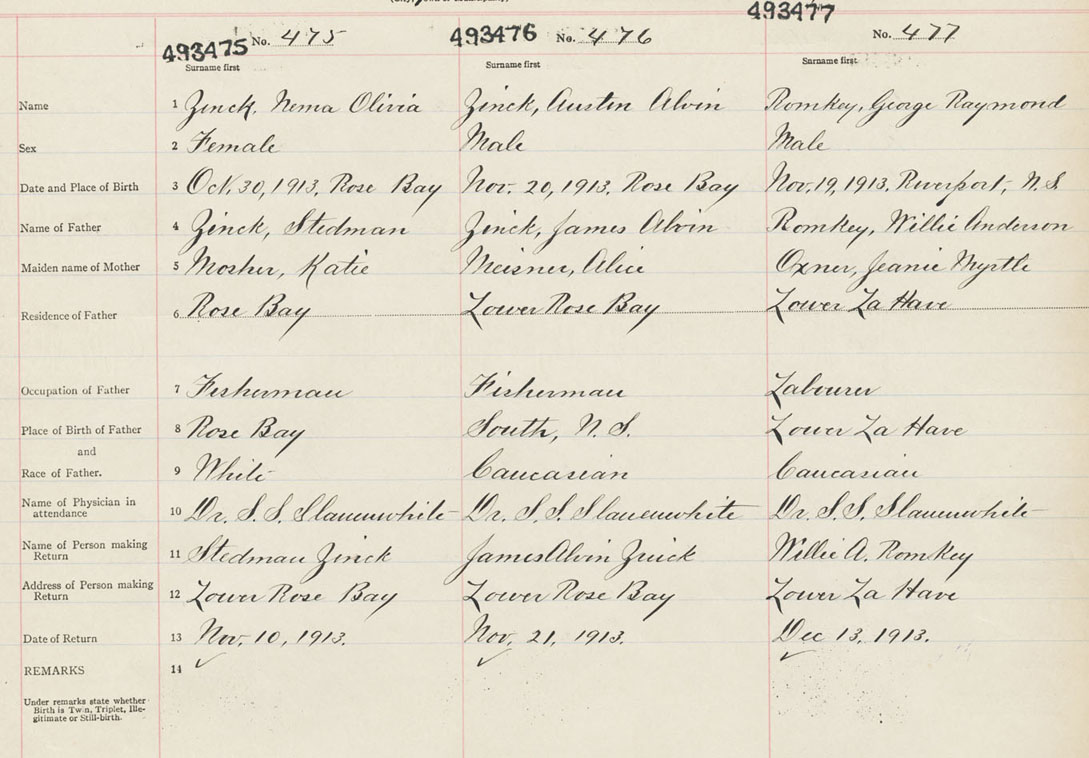 493475 No. 475 493476 No. 476 493477 No. 477
Surname first Surname first Surname first
Name 1 Zinck, Nema Olivia Zinck, Austin Alvin Romkey, George Raymond
Sex 2 Female Male Male
Date and Place of Birth 3 Oct. 30, 1913. Rose Bay Nov. 20, 1913. Rose Bay Nov. 19, 1913. Riverport, N.S.
Name of Father 4 Zinck, Stedman Zinck, James Alvin Romkey, Willie Anderson
Maiden name of Mother 5 Mosher, Katie Meisner, Alice Oxner, Jeanie Myrtle
Residence of Father 6 Rose Bay Lower Rose Bay Lower La Have
Occupation of Father 7 Fisherman Fisherman Labourer
Place of Birth of Father 8 Rose Bay South, N.S. Lower La Have
and
Race of Father. 9 White Caucasian Caucasian
Name of Physician in
attendance 10 Dr. S. S. Slauenwhite Dr. S. S. Slauenwhite Dr. S. S. Slauenwhite
Name of Person making
Return 11 Stedman Zinck James Alvin Zinck Willie A. Romkey
Address of Person making
Return 12 Lower Rose Bay Lower Rose Bay Lower La Have
Date of Return 13 Nov. 10, 1913. Nov. 21, 1913. Dec 13, 1913.
REMARKS 14
Under remarks state whether
Birth is Twin, Triplet, Ille-
gitimate or Still-birth.